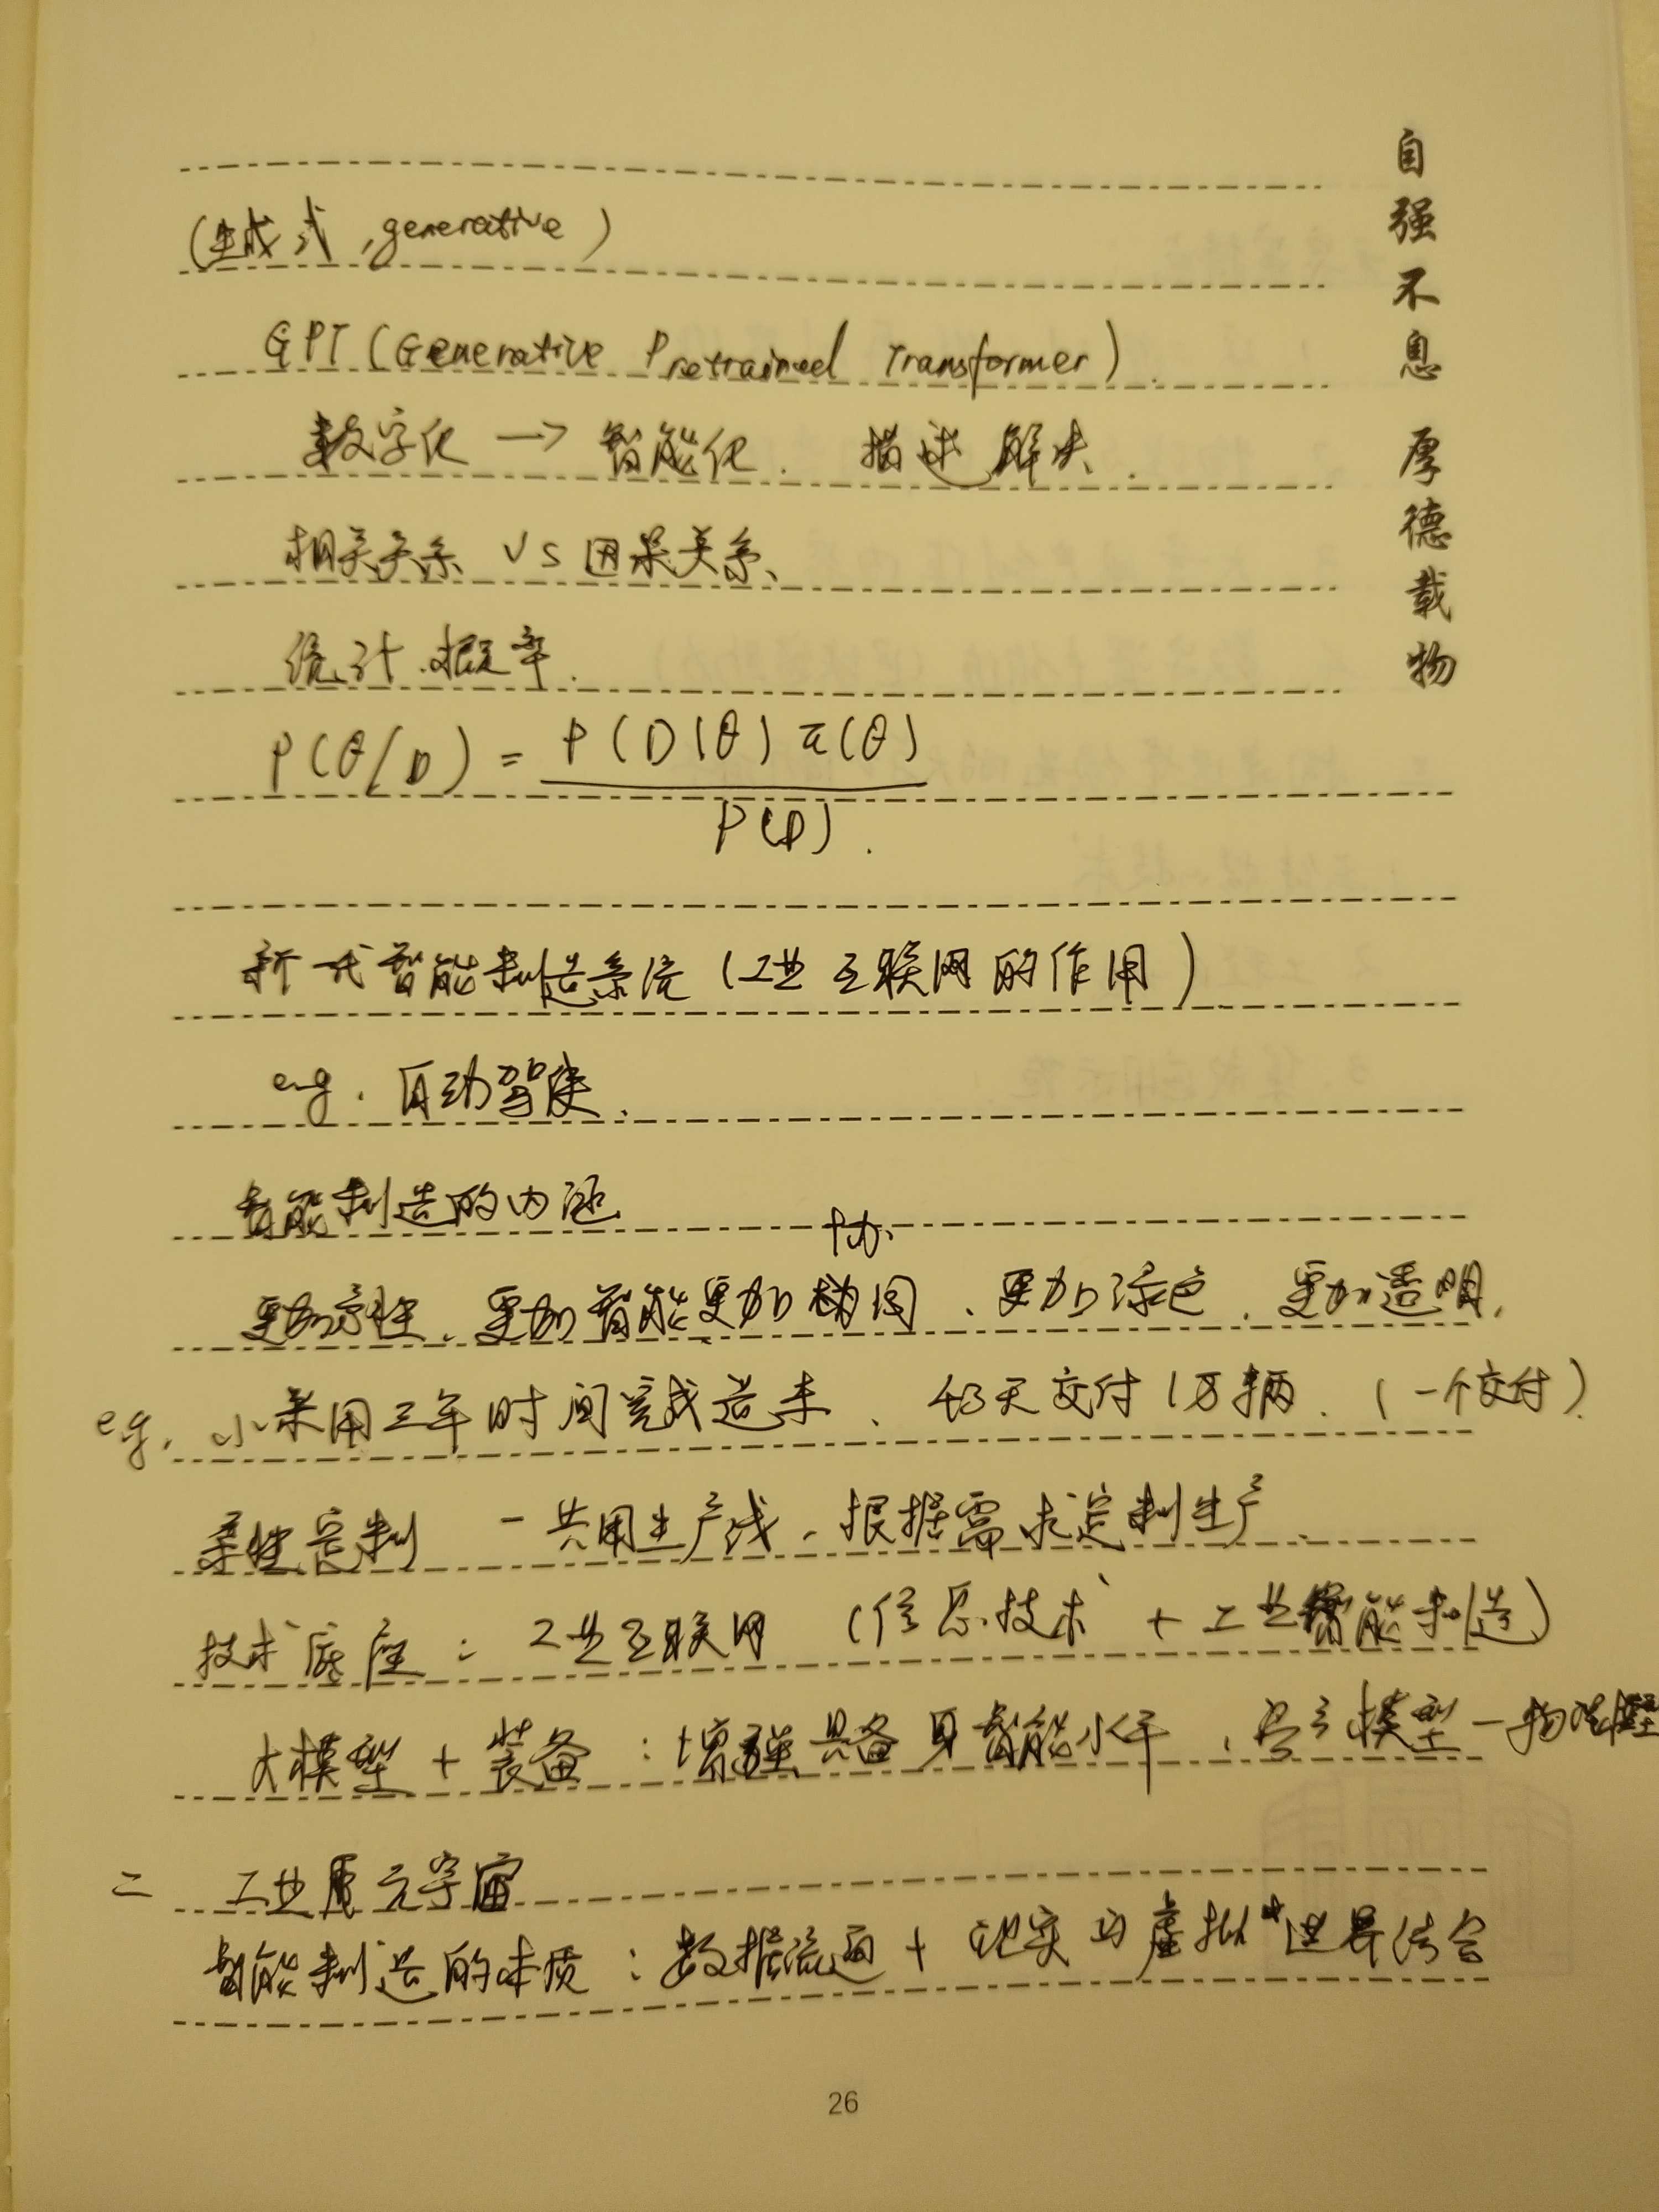 自强不息 厚德载物
(生成式,generative)
GPT (Generative Pretrained Transformer).
数字化 → 智能化. 描述 解决.
相关关系 VS 因果关系、
统计.概率.
P(θ/D) = P(D|θ) π(θ)
P(D).
新一代智能制造系统 (工业互联网的作用).
e.g. 自动驾驶.
智能制造的内涵
协
更加柔性、更加智能、更加 同、更加绿色、更加透明,
eg. 小米用三年时间完成造车、43天交付1万辆. (一个交付).
柔性定制 - 共用生产线,根据需求定制生产.
技术底座: 工业互联网 (信息技术 + 工业智能制造)
大模型 + 装备: 增强具备 身智能水平, 模型 - 物理模型
二 工业 元宇宙
智能制造的本质: 数据流通 + 现实与虚拟 世界结合
26